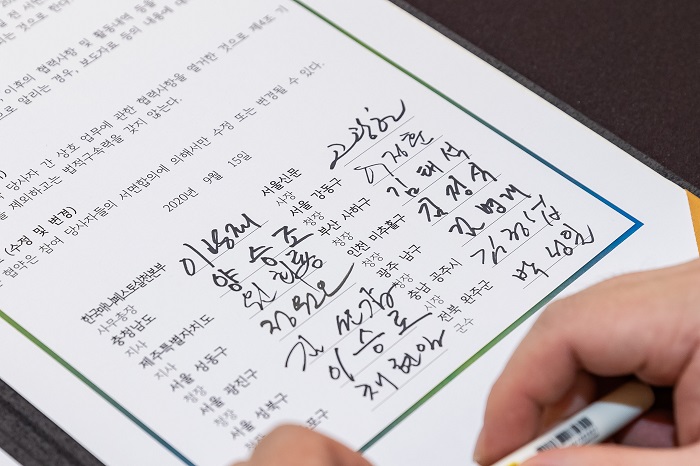 이후의 협력사항 및 활동내역 등을
으로 알리는 경우, 보도자료 등의 내용에 대
당사자 간 상호 업무에 관한 협력사항을 열거한 것으로 제4조 기
제외하고는 법적구속력을 갖지 않는다.
(수정 및 변경)
협약은 참여 당사자들의 서면합의에 의해서만 수정 또는 변경될 수 있다.
2020년 9월 15일
한국매니페스토실천본부
사무총장 이광재
충청남도
지사 양승조
제주특별자치도
지사 원희룡
서울 성동구
청장 정원오
서울 광진구
청장 김선갑
서울 성북구
청장 이승로
포구
채현일
서울신문
사장 고광헌
서울 강동구
청장 이정훈
부산 사하구
청장 김태석
인천 미추홀구
청장 김정식
광주 남구
청장 김병내
충남 공주시
시장 김정섭
전북 완주군
군수 박성일